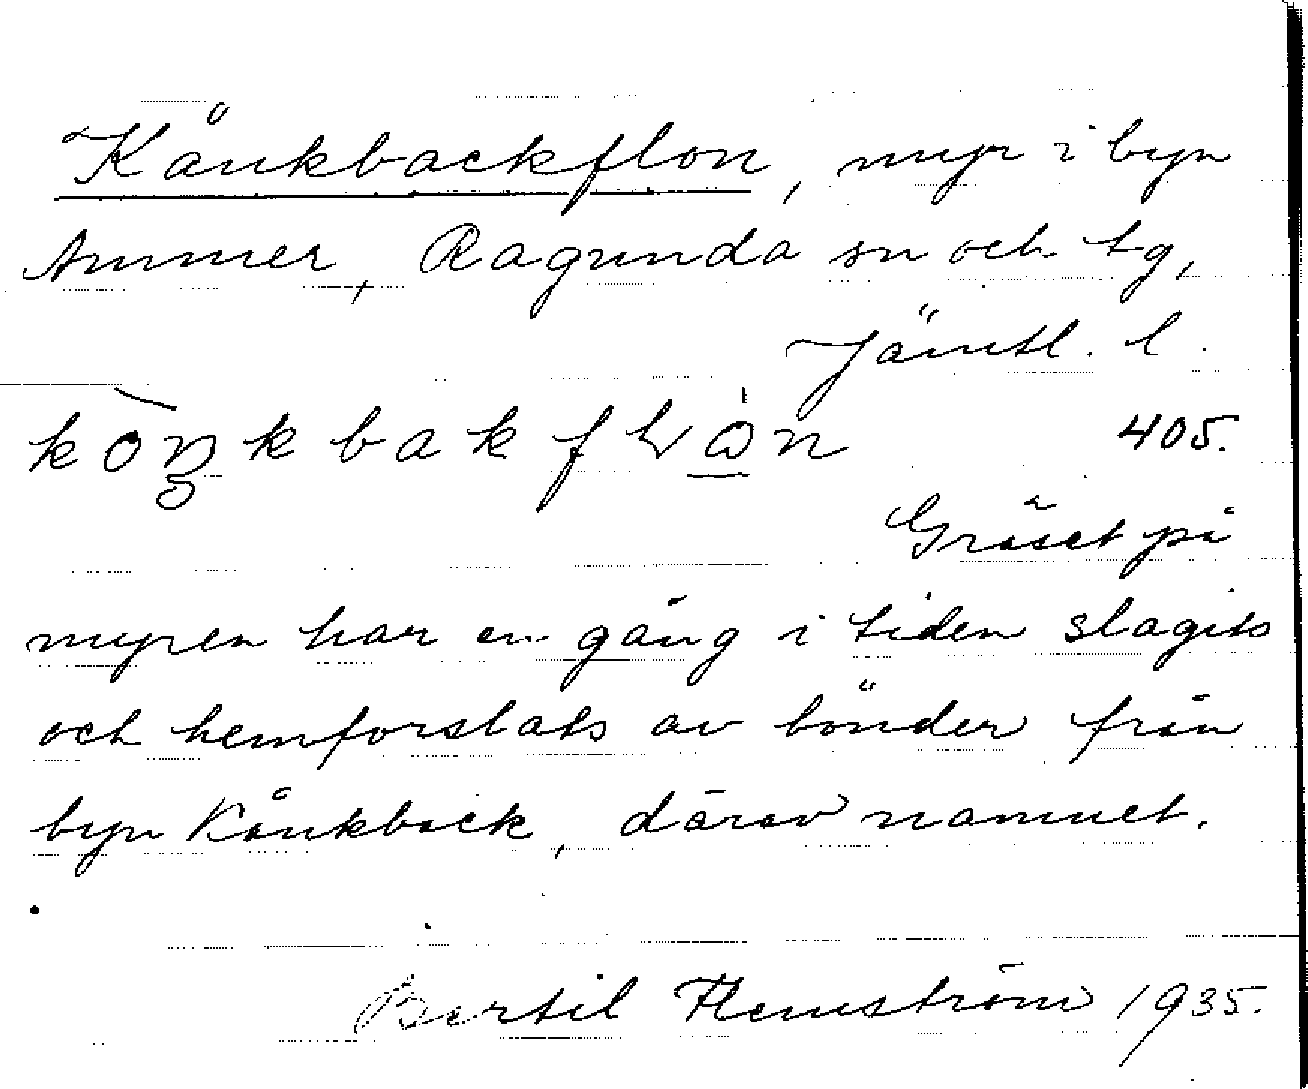 Kånkbackflon, myr i byn
Ammer, Ragunda sn och tg,
Jämtl. l.
405.
Gräset på
myren har en gång i tiden slagits
och hemforslats av bönder från
byn Kånkback, därav namnet.
Bertil Flemström 1935.